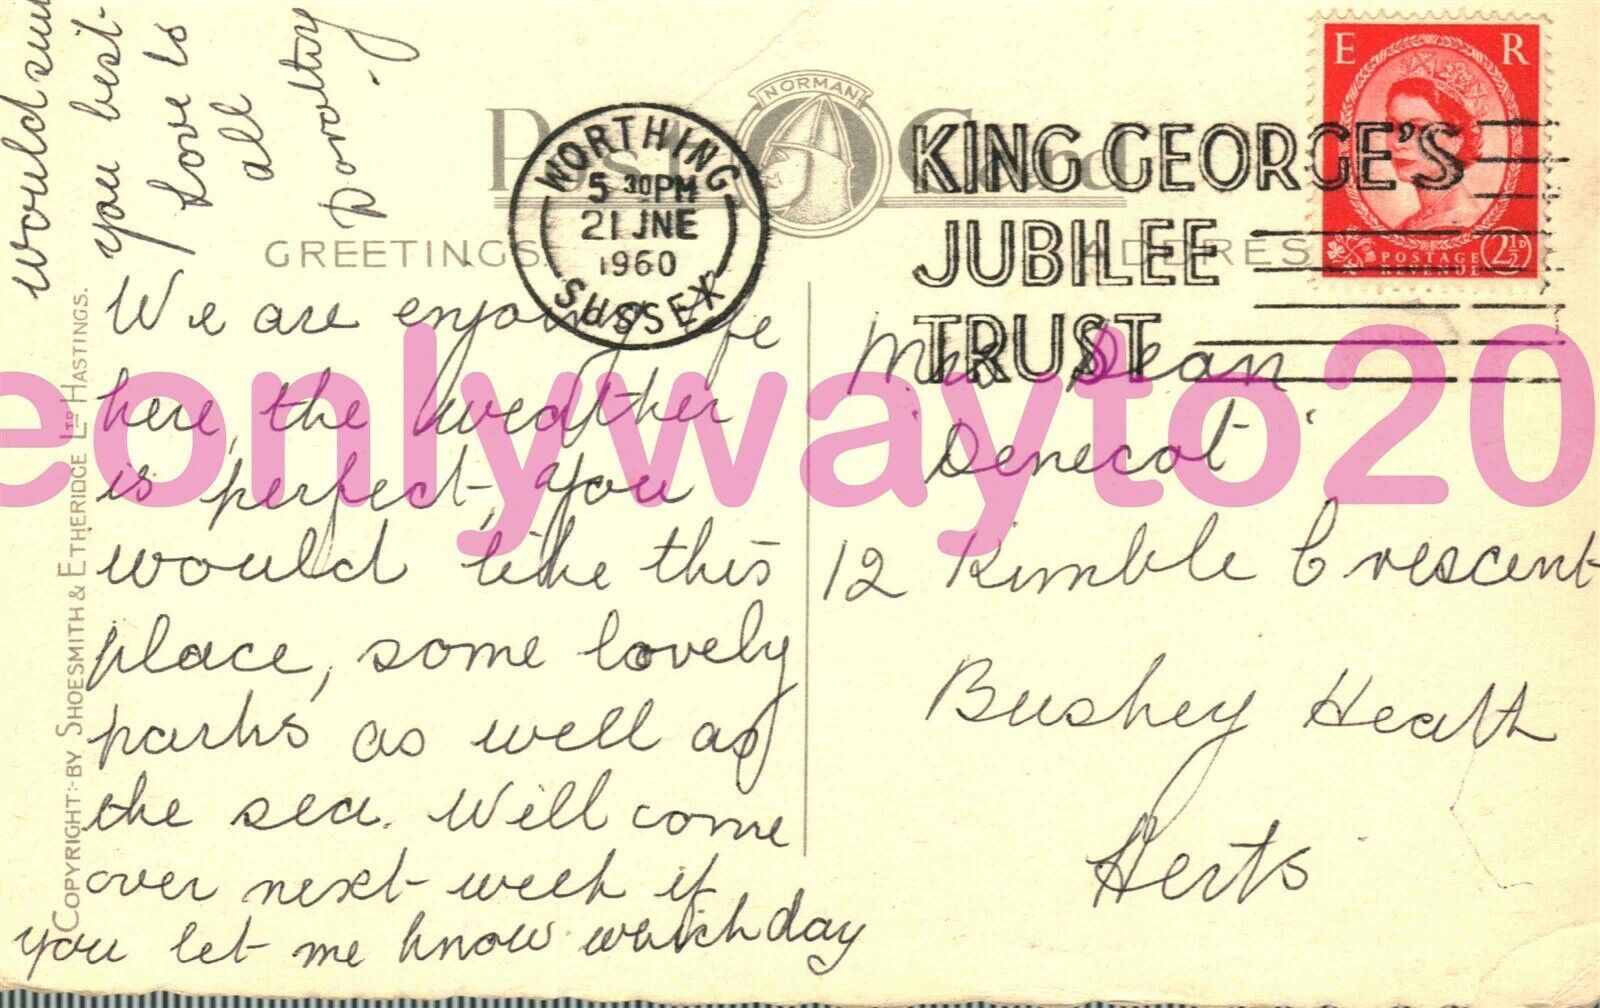 POST CARD
NORMAN
GREETINGS.
ADDRES
WORTHING
5 30PM
21 JNE
1960
SUSSEX
KING GEORGE'S
JUBILEE
TRUST
E R
POSTAGE
REVENUE
2½D
We are enjoying life
here, the weather
is perfect, you
would like this
place, some lovely
parks as well as
the sea. Will come
over next week if
you let me know which day
would suit
you best-
Love to
all
Dorothy.
Mrs Dean
'Denecot'
12 Kimble Crescent
Bushey Heath
Herts
COPYRIGHT:-BY SHOESMITH & ETHERIDGE LTD HASTINGS.
eonlywayto20